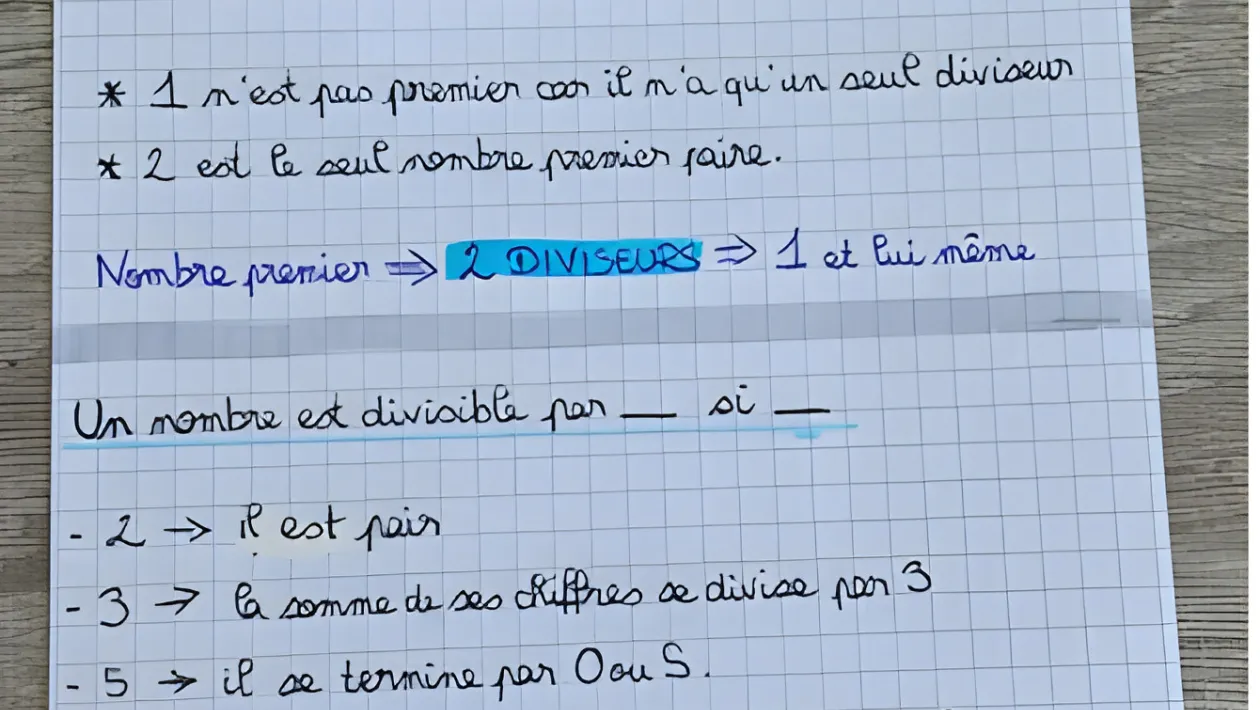 * 1 n'est pas premier car il n'a qu'un seul diviseur
* 2 est le seul nombre premier paire.
Nombre premier ⇒ 2 DIVISEURS ⇒ 1 et lui même
Un nombre est divisible par __ si __
- 2 → il est pair
- 3 → la somme de ses chiffres se divise par 3
- 5 → il se termine par 0 ou 5.